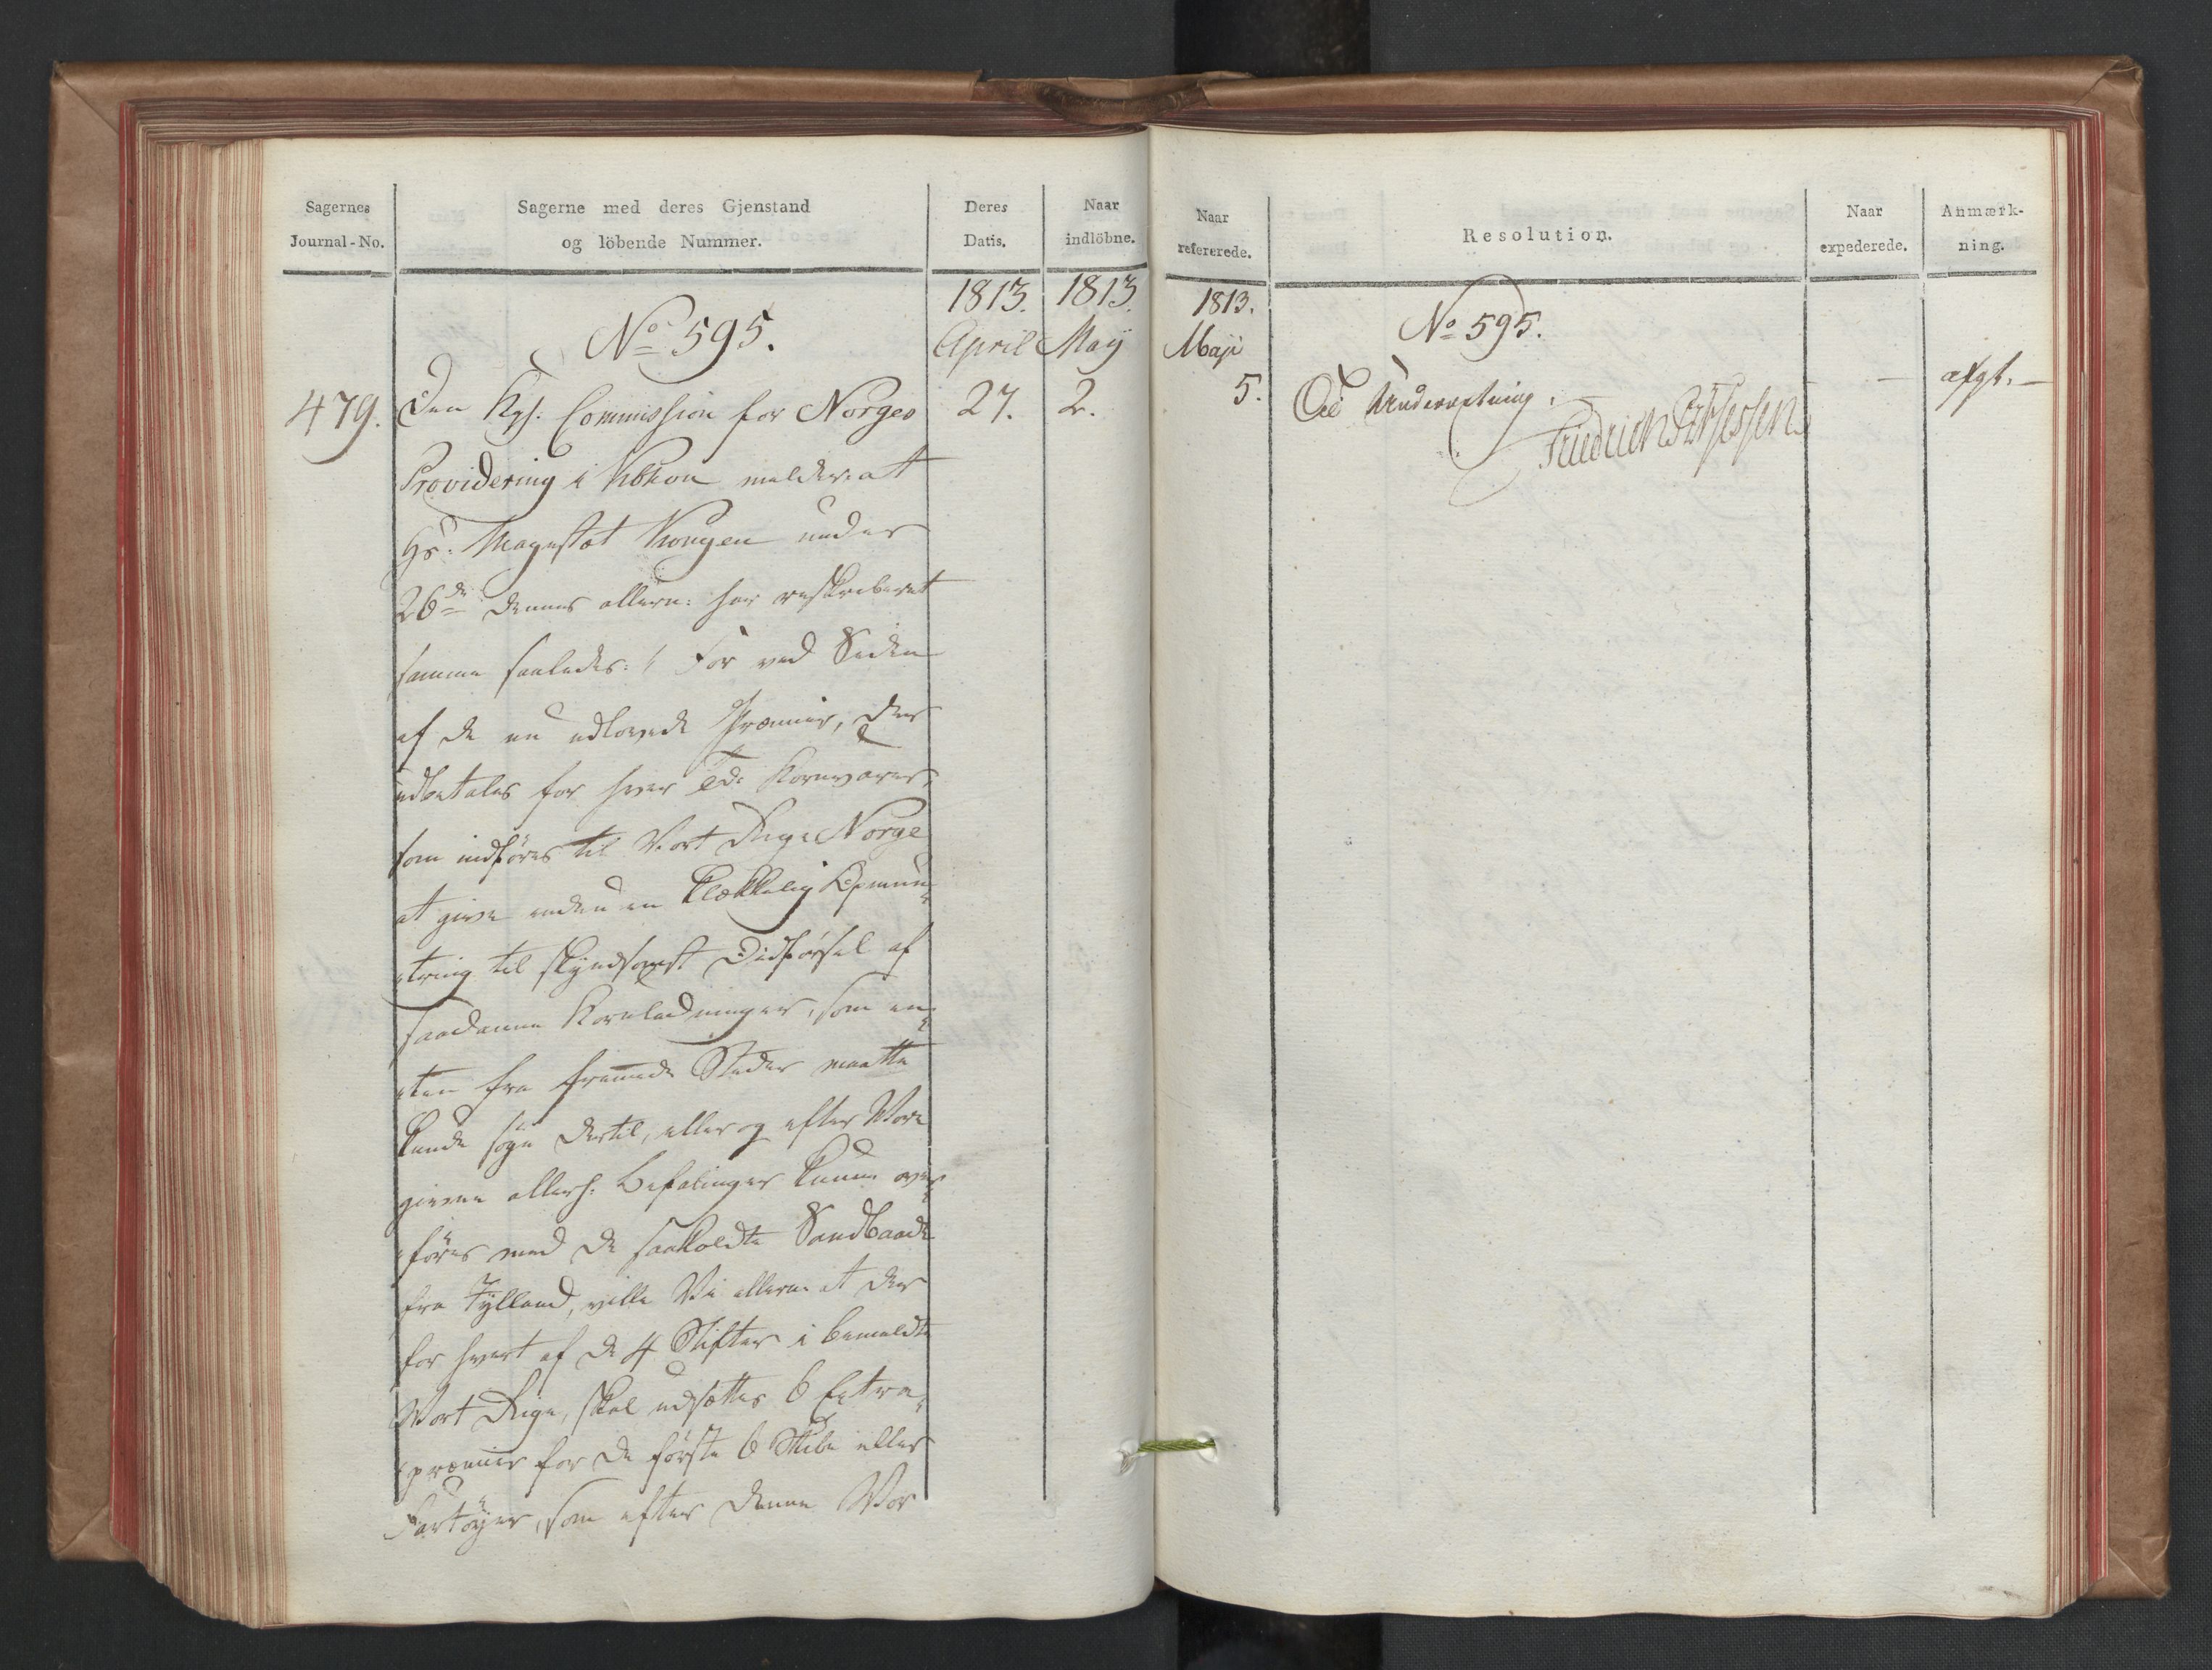 Sagernes
Journal-No.
Sagerne med deres Gjenstand
og löbende Nummer.
Deres
Datis.
Naar
indlöbne.
1813.
April
27.
1813.
Maÿ
2.
No 595.
479.
Den Kgl. Commission for Norges
Providering i Kbhvn melder: at
Hs: Mayestæt Kongen under
26de dennes allern: har reskriberet
samme saaledes: / For ved Siden
af de nu udlovede Præmier, der
udbetales for hver Tde Kornvarer,
som indføres til Vort Rige Norge
at give endnu en klækkelig Opmun-
-tring til skyndsomst Tidførsel af
saadanne Kornladninger, som en-
-ten fra fremmede Steder maatte
kunde søge dertil, eller og efter Vore
givne allerh. Befalinger kunne over-
-føres med de saakaldte Sandbaade
fra Jylland, ville Vi allern. at der
for hvert af de 4 Stifter i bemeldte
Vort Rige, skal udsættes 6 Extra-
-præmier for de første 6 Skibe eller
Fartøyer, som efter denne Vor
Naar
refererede.
Resolution.
Naar
expederede.
Anmærk-
ning.
1813.
Maji
5.
No 595.
Til Underretning.
Friedrich
afgt. —